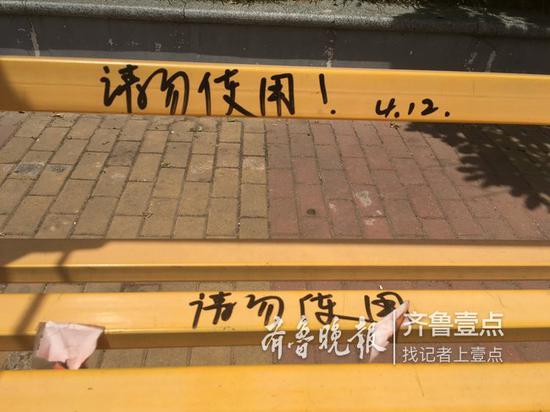 请勿使用！ 4.12.
请勿使用
齐鲁晚报 齐鲁壹点
找记者上壹点